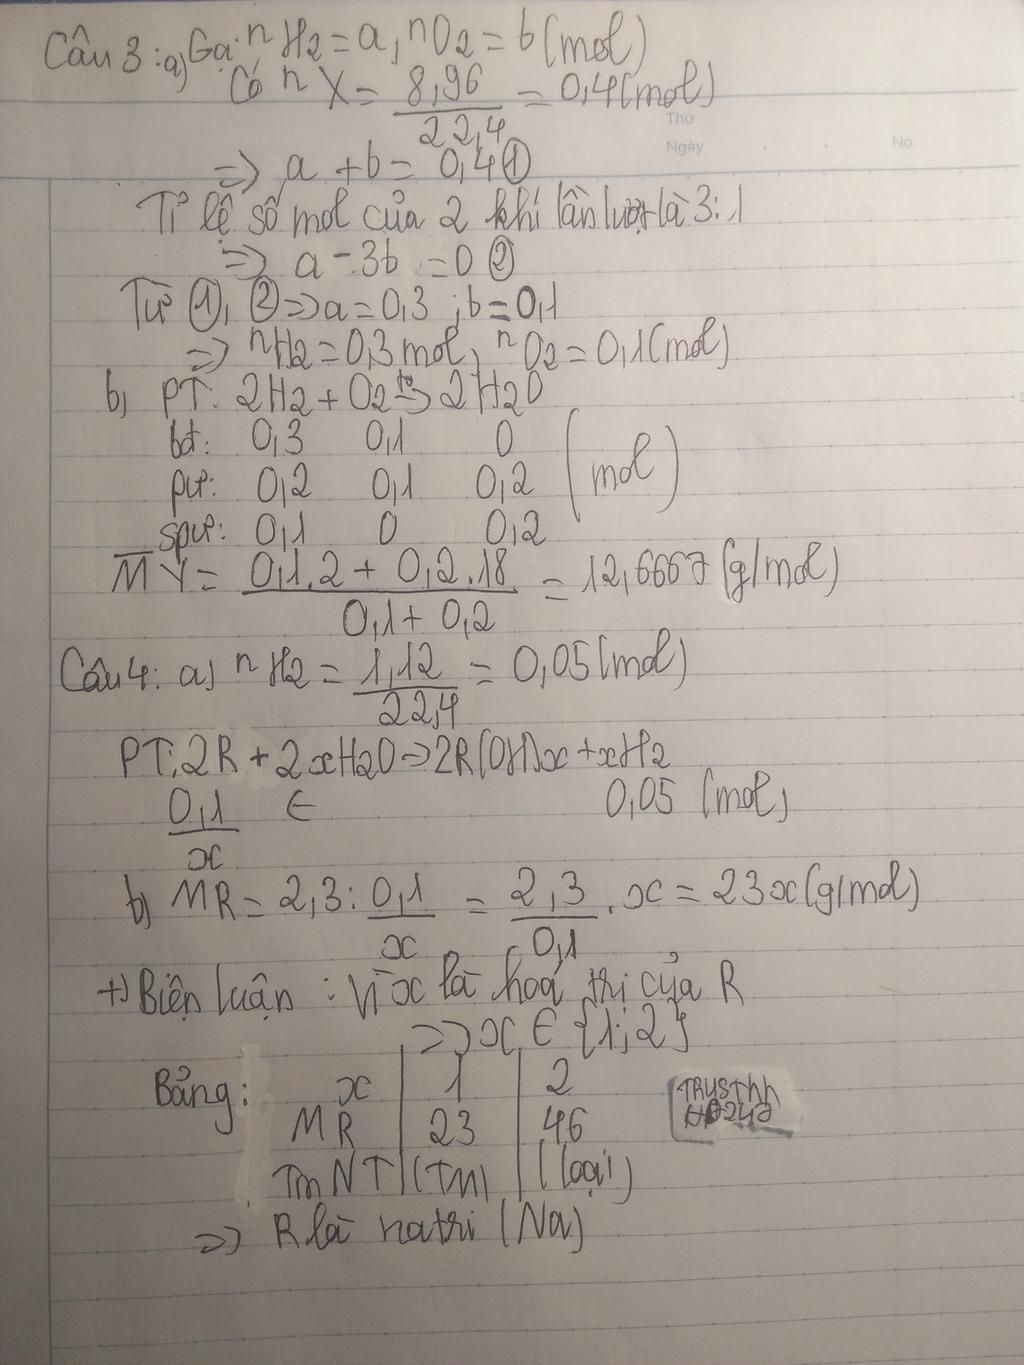 Câu 3: a) Gọi nH2 = a, nO2 = b (mol)
Có nX = 8,96/22,4 = 0,4 (mol)
Thứ
Ngày . . No.
=> a + b = 0,4 ①
Tỉ lệ số mol của 2 khí lần lượt là 3:1
=> a - 3b = 0 ②
Từ ①, ② => a = 0,3 ; b = 0,1
=> nH2 = 0,3 mol, nO2 = 0,1 (mol)
b, PT: 2H2 + O2 t°-> 2H2O
bđ: 0,3 0,1 0
pư: 0,2 0,1 0,2 (mol)
spư: 0,1 0 0,2
M̅Y = (0,1.2 + 0,2.18)/(0,1 + 0,2) = 12,6667 (g/mol)
Câu 4: a) nH2 = 1,12/22,4 = 0,05 (mol)
PT: 2R + 2xH2O -> 2R(OH)x + xH2
0,1/x ← 0,05 (mol)
b) MR = 2,3 : 0,1/x = 2,3/0,1 . x = 23x (g/mol)
+) Biện luận: Vì x là hoá trị của R
=> x ∈ {1; 2}
Bảng: x | 1 | 2
MR | 23 | 46
Tm NT | (TM) | (loại)
=> R là natri (Na)